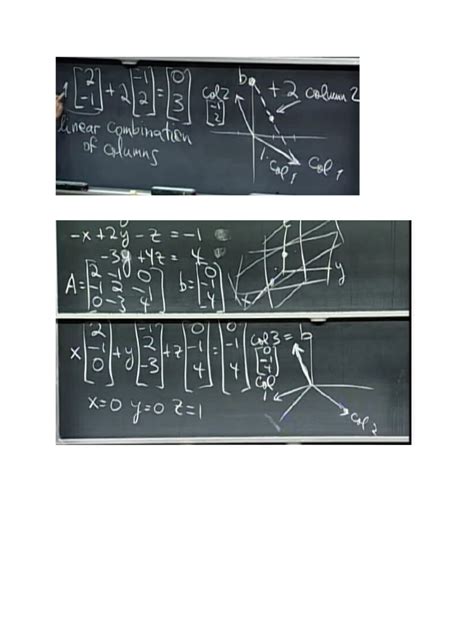 1 [2 -1] + 2 [-1 2] = [0 3]
linear combination
of columns
col 2
[-1 2]
b
+ 2 column 2
1 · col 1
col 1
-x + 2y - z = -1
-3y + 4z = 4
A = [2 -1 0
-1 2 -1
0 -3 4]
b = [0 -1 4]
y
x [2 -1 0] + y [-1 2 -3] + z [0 -1 4] = [0 -1 4]
x=0 y=0 z=1
col 3 = b
[0 -1 4]
col 1
col 2